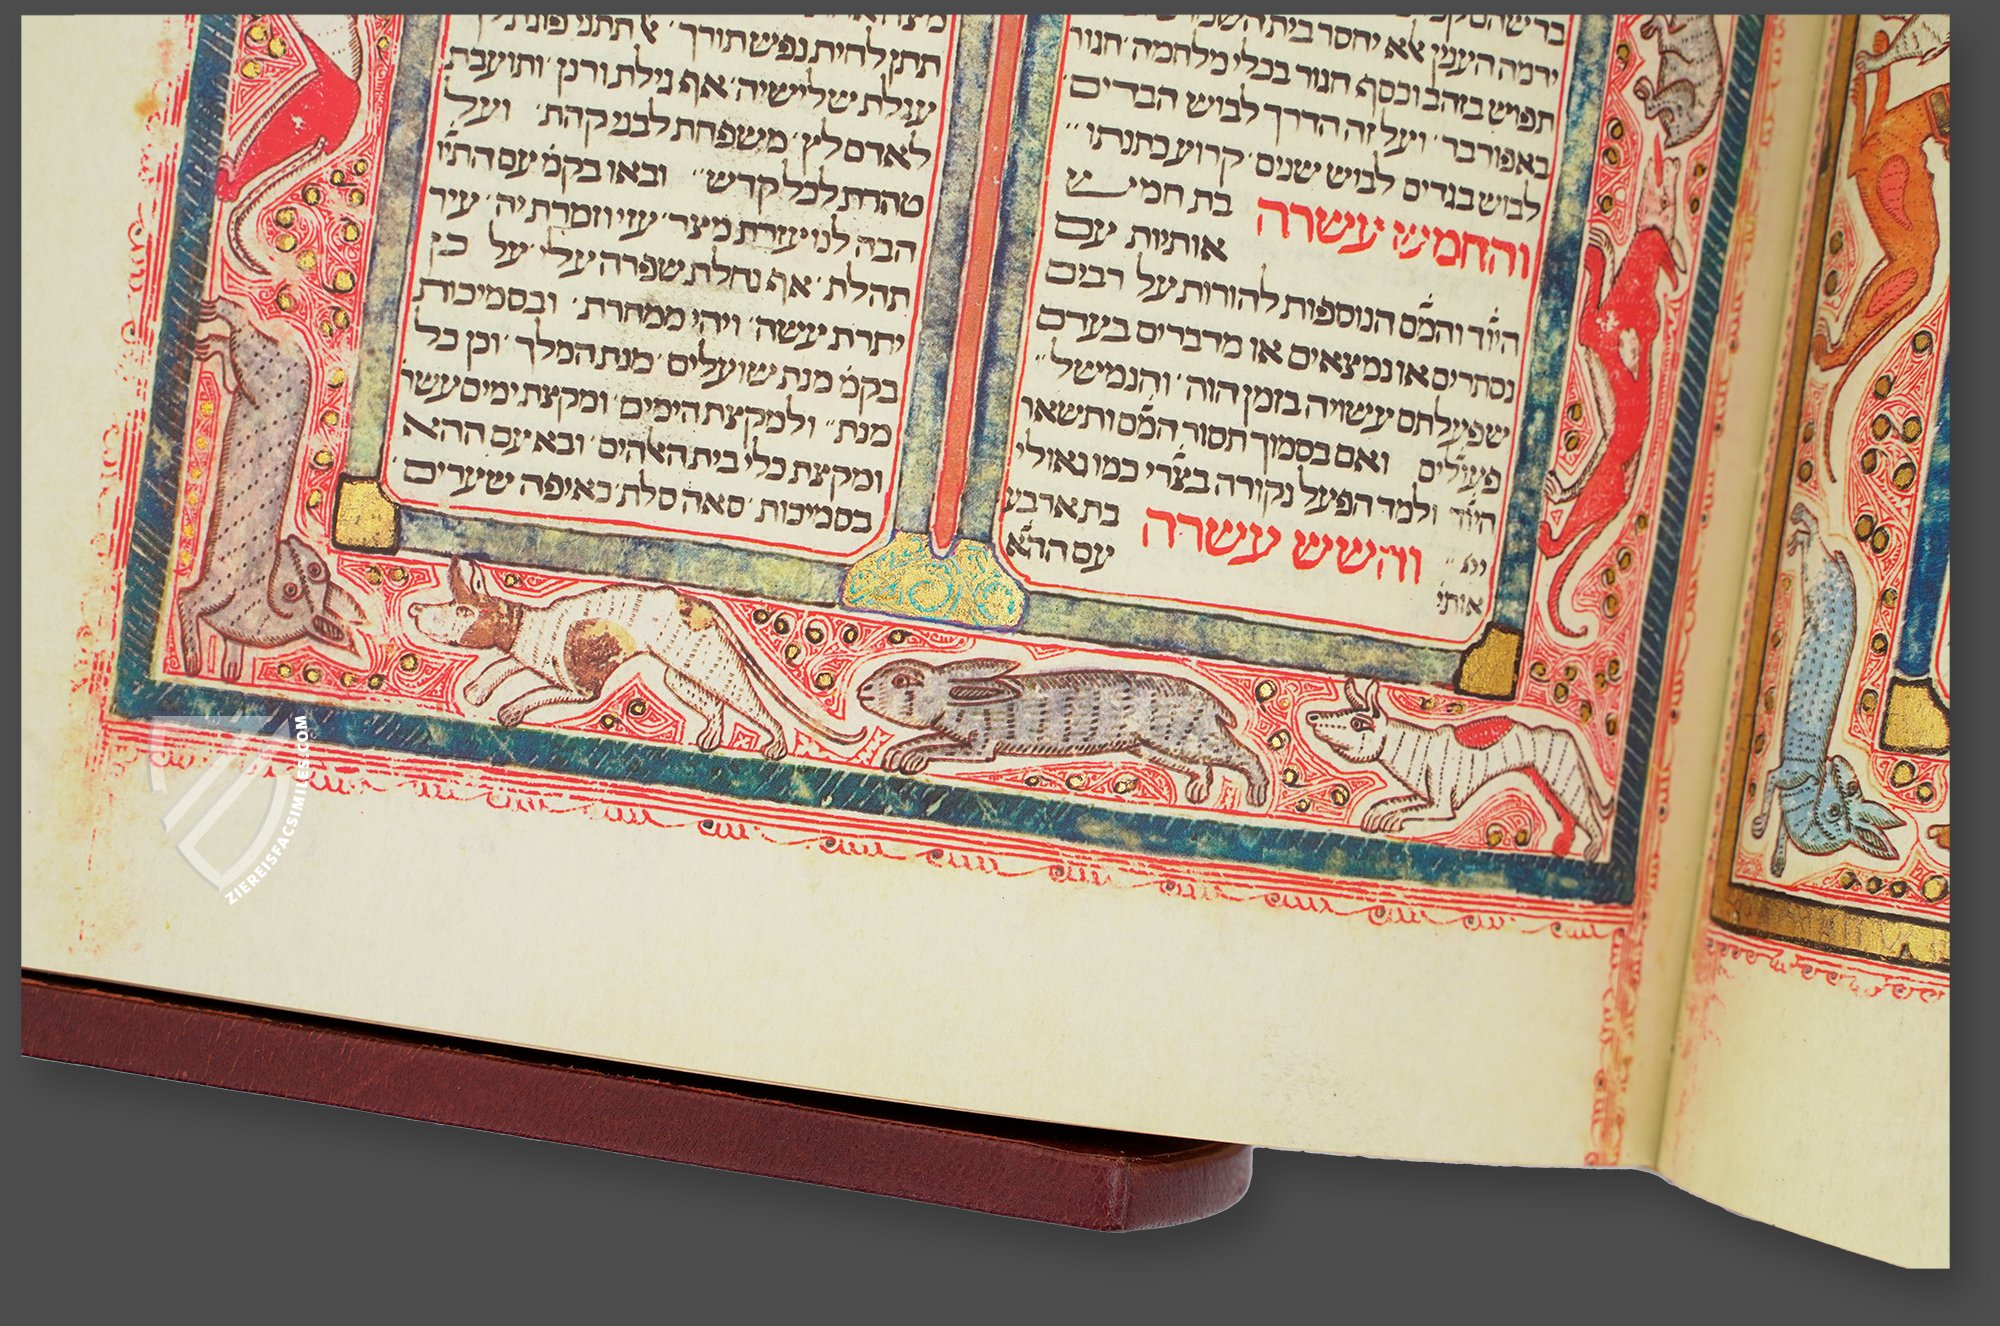 ירמה הענין לא יחסר בית השמוש
תפוש בזהב וכסף חגור בכלי מלחמה חגור
באפור בר ועל זה הדרך לבוש הבדים
לבוש בגדים לבוש שנים קרוע כתנתו
והחמש עשרה בת חמיש
אותיות עם
היוד והמם הנוספות להורות על רבים
נסתרים או נמצאים או מדברים בעדם
שפעלתם עשויה בזמן הוה והנמשל
פעולים ואם בסמוך תסור המם ותשאר
היוד ולמד הפעל נקודה בצרי כמו גאולי
והשש עשרה בת ארבע
אותי עם ההא
תתן לחית נפש תורך אל תתני
עגלת שלישיה אף גילת ורנן ותועבת
לאדם לץ משפחת לבני קהת ועל
טהרת לכל קדש ובאו בקמ עם התיו
הבה לנו עזרת מצר עזי וזמרת יה עיר
תהלת אף נחלת שפרה עלי על כן
יתרת עשה ויהי ממחרת ובסמיכות
בקמ מנת שועלים מנת המלך וכן כל
מנת ולמקצת הימים ומקצת ימים עשר
ומקצת כלי בית האלהים ובא עם ההא
בסמיכות סאה סלת כאיפה שערים
ZIEREISFACSIMILES.COM